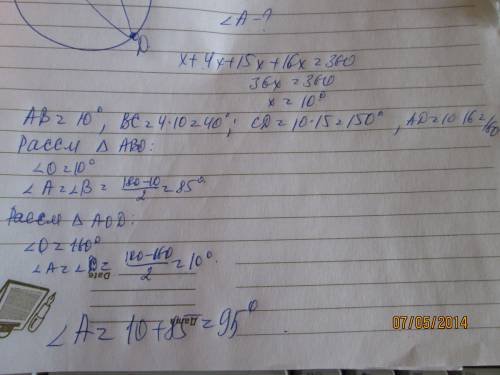 ∠A-?
D
x+4x+15x+16x=360
36x=360
x=10°
AB=10°, BC=4·10=40°; CD=10·15=150°, AD=10·16=160
Рассм △ ABO:
∠O=10°
∠A=∠B= (180-10)/2 =85°
Рассм △ AOD:
∠O=160°
∠A=∠D= (180-160)/2 =10°.
Date
Дата
∠A= 10+85=95°
07/05/2014